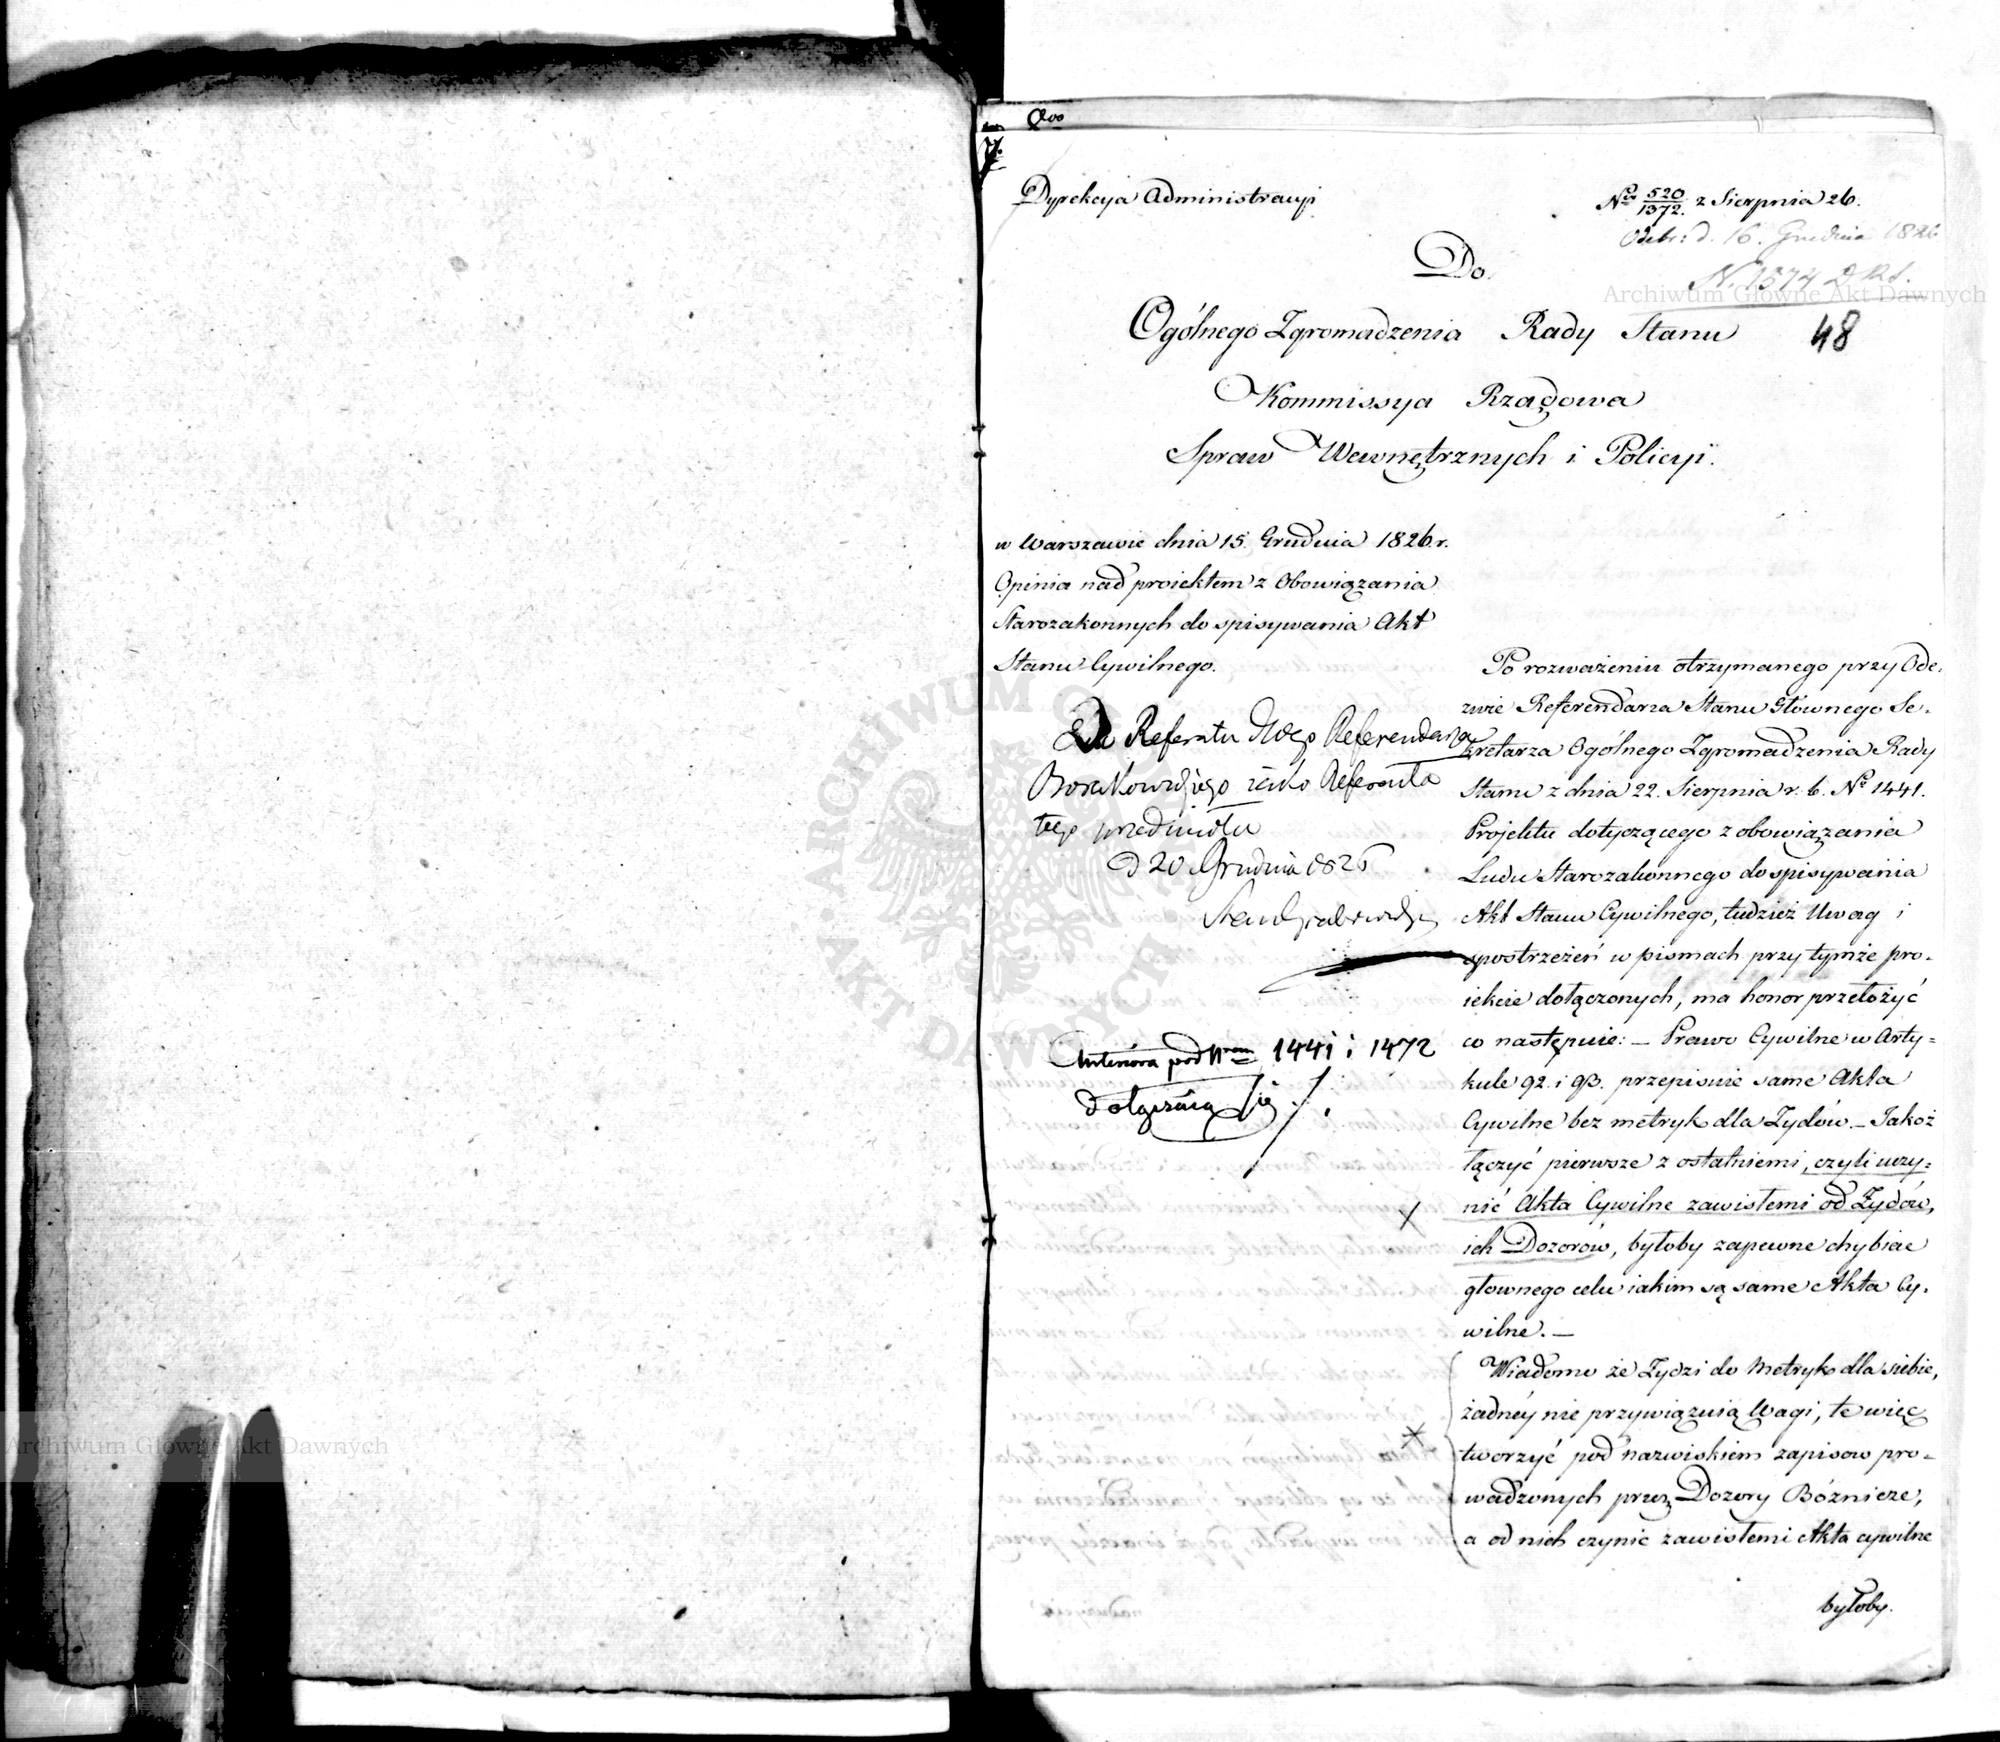 Dyrekcya Administracyi
Nro 520/1372. z Sierpnia 26.
Odebr: d. 16. Grudnia 1826
N. 1574
48
Do
Ogólnego Zgromadzenia Rady Stanu
Kommissya Rządowa
Spraw Wewnętrznych i Policyi.
w Warszawie dnia 15. Grudnia 1826 r.
Opinia nad proiektem z Obowiązania
Starozakonnych do spisywania Akt
Stanu Cywilnego.
Do Referatu JWgo Referendarza
jako Referenta
tego przedmiotu
d 20 Grudnia 1826
Anteriora pod Nrem 1441 i 1472
dołączaią się
Po rozważeniu otrzymanego przy Ode-
zwie Referendarza Stanu Głownego Se-
kretarza Ogólnego Zgromadzenia Rady
Stanu z dnia 22. Sierpnia r. b. No 1441.
Projektu dotyczącego z obowiązania
Ludu Starozakonnego do spisywania
Akt Stanu Cywilnego, tudzież Uwag i
spostrzeżeń w pismach przy tymże pro-
iekcie dołączonych, ma honor przełożyć
co następuie: – Prawo Cywilne w Arty-
kule 92. i 93. przepisuie same Akta
Cywilne bez metryk dla Żydów. – Jakoż
łączyć pierwsze z ostatniemi, czyli uczy-
nić Akta Cywilne zawisłemi od Żydów,
ich Dozorów, byłoby zapewne chybiać
głownego celu iakim są same Akta Cy-
wilne. –
Wiadomo że Żydzi do Metryk dla siebie,
żadnéy nie przywiązuią Wagi, te więc
tworzyć pod nazwiskiem zapisow pro-
wadzonych przez Dozory Bóżnicze,
a od nich czynić zawisłemi Akta cywilne
byłoby.
Archiwum Główne Akt Dawnych
Archiwum Główne Akt Dawnych
ARCHIWUM GŁÓWNE AKT DAWNYCH